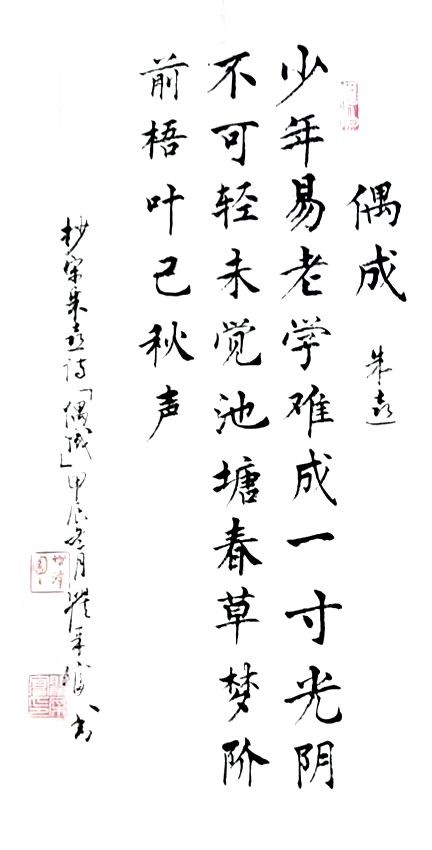 偶成 朱熹
少年易老学难成一寸光阴
不可轻未觉池塘春草梦阶
前梧叶已秋声
抄宋朱熹诗「偶成」甲辰冬月